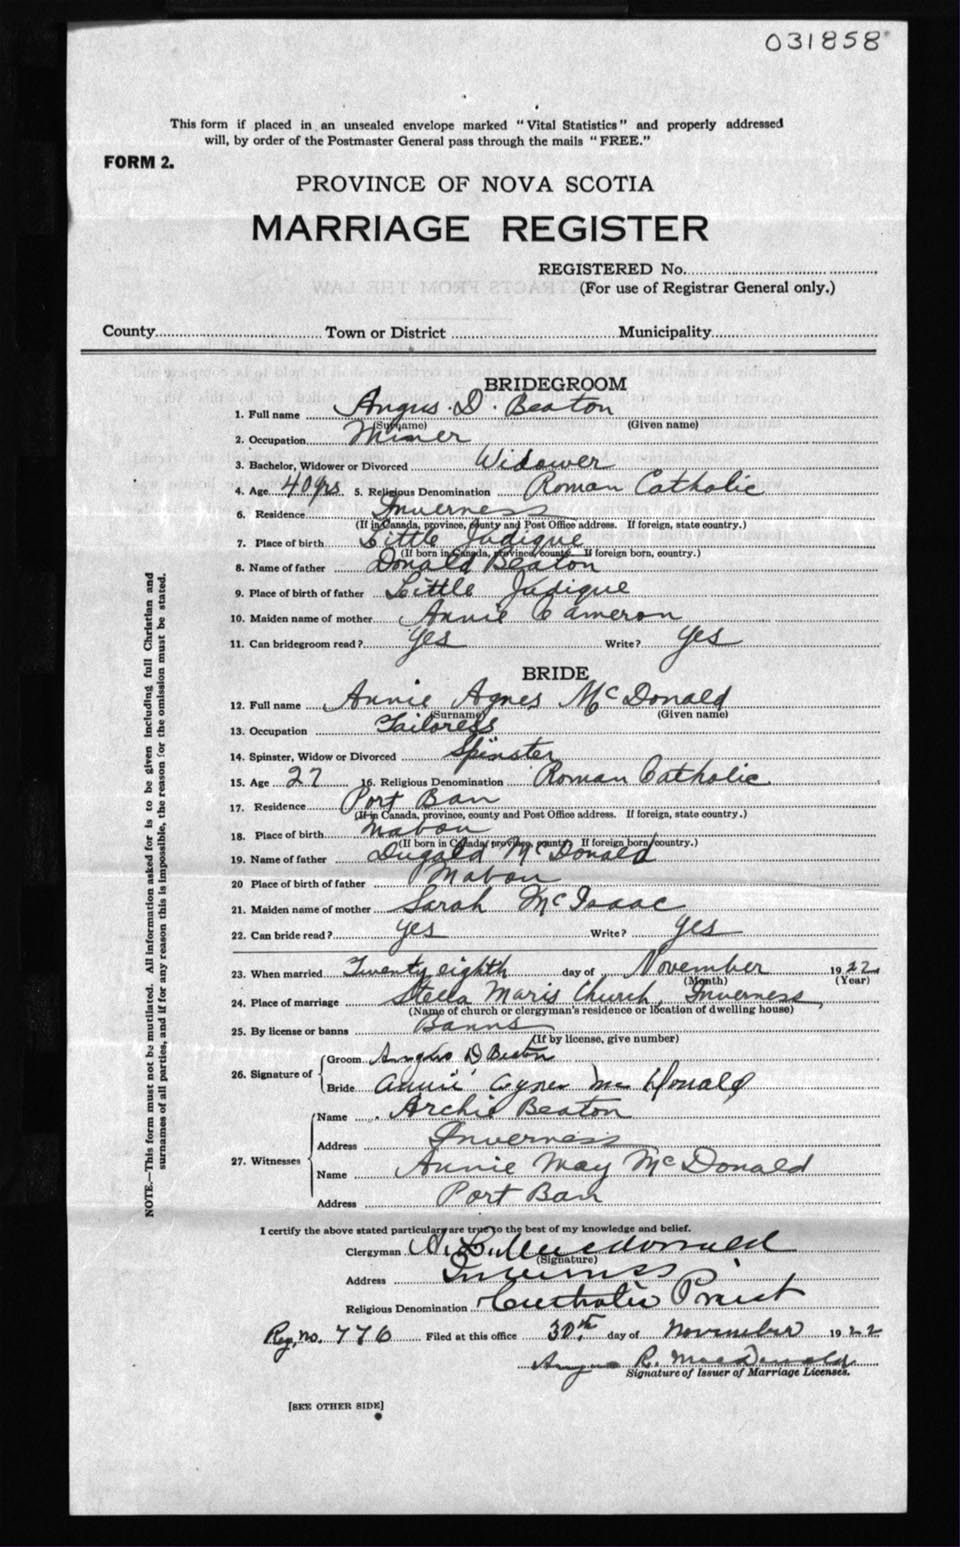 031858
This form if placed in an unsealed envelope marked "Vital Statistics" and properly addressed
will, by order of the Postmaster General pass through the mails "FREE."
FORM 2.
PROVINCE OF NOVA SCOTIA
MARRIAGE REGISTER
REGISTERED No.
(For use of Registrar General only.)
County Town or District Municipality
BRIDEGROOM
1. Full name Angus D. Beaton
(Surname) (Given name)
2. Occupation Miner
3. Bachelor, Widower or Divorced Widower
4. Age 40 yrs. 5. Religious Denomination Roman Catholic
6. Residence Inverness
(If in Canada, province, county and Post Office address. If foreign, state country.)
7. Place of birth Little Judique
(If born in Canada, province, county. If foreign born, country.)
8. Name of father Donald Beaton
9. Place of birth of father Little Judique
10. Maiden name of mother Annie Cameron
11. Can bridegroom read? Yes Write? Yes
BRIDE
12. Full name Annie Agnes McDonald
(Surname) (Given name)
13. Occupation Tailoress
14. Spinster, Widow or Divorced Spinster
15. Age 27 16. Religious Denomination Roman Catholic
17. Residence Port Ban
(If in Canada, province, county and Post Office address. If foreign, state country.)
18. Place of birth Mabou
(If born in Canada, province, county. If foreign born, country.)
19. Name of father Dugald McDonald
20 Place of birth of father Mabou
21. Maiden name of mother Sarah McIsaac
22. Can bride read? Yes Write? Yes
23. When married Twenty eighth day of November 1922
(Month) (Year)
24. Place of marriage Stella Maris Church, Inverness,
(Name of church or clergyman's residence or location of dwelling house)
25. By license or banns Banns
(If by license, give number)
26. Signature of Groom Angus D Beaton
Bride Annie Agnes McDonald
27. Witnesses Name Archie Beaton
Address Inverness
Name Annie May McDonald
Address Port Ban
I certify the above stated particulars are true to the best of my knowledge and belief.
Clergyman Macdonald
(Signature)
Address Inverness
Religious Denomination Catholic Priest
Reg. No. 776 Filed at this office 30th. day of November 1922
Angus R. MacDonald
Signature of Issuer of Marriage Licenses.
[SEE OTHER SIDE]
NOTE.—This form must not be mutilated. All information asked for is to be given including full Christian and
surnames of all parties, and if for any reason this is impossible, the reason for the omission must be stated.